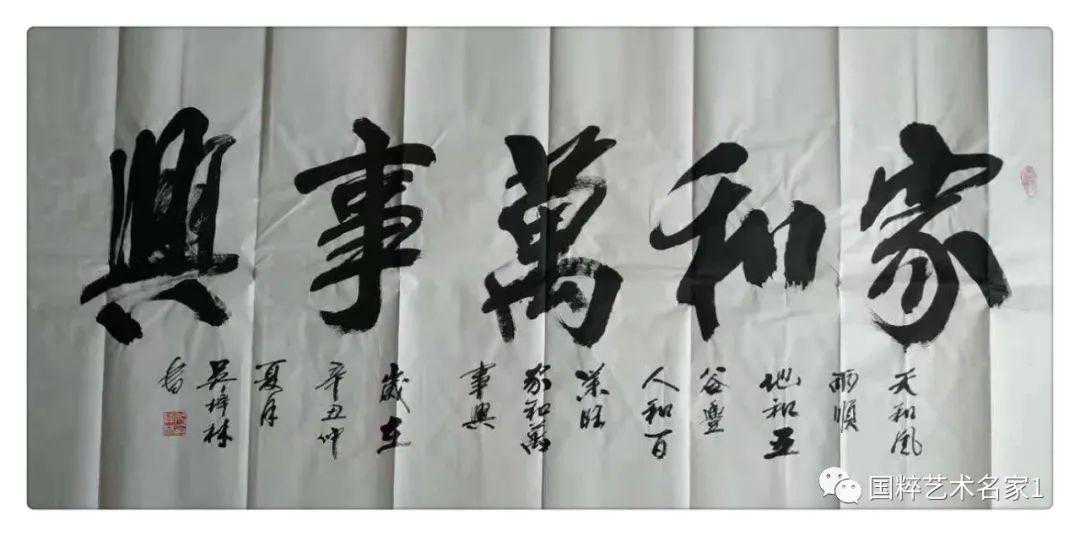 家和萬事興
天和風
雨順
地和五
谷豐
人和百
業旺
家和萬
事興
歲在
辛丑仲
夏月
吴梓林
書
国粹艺术名家1